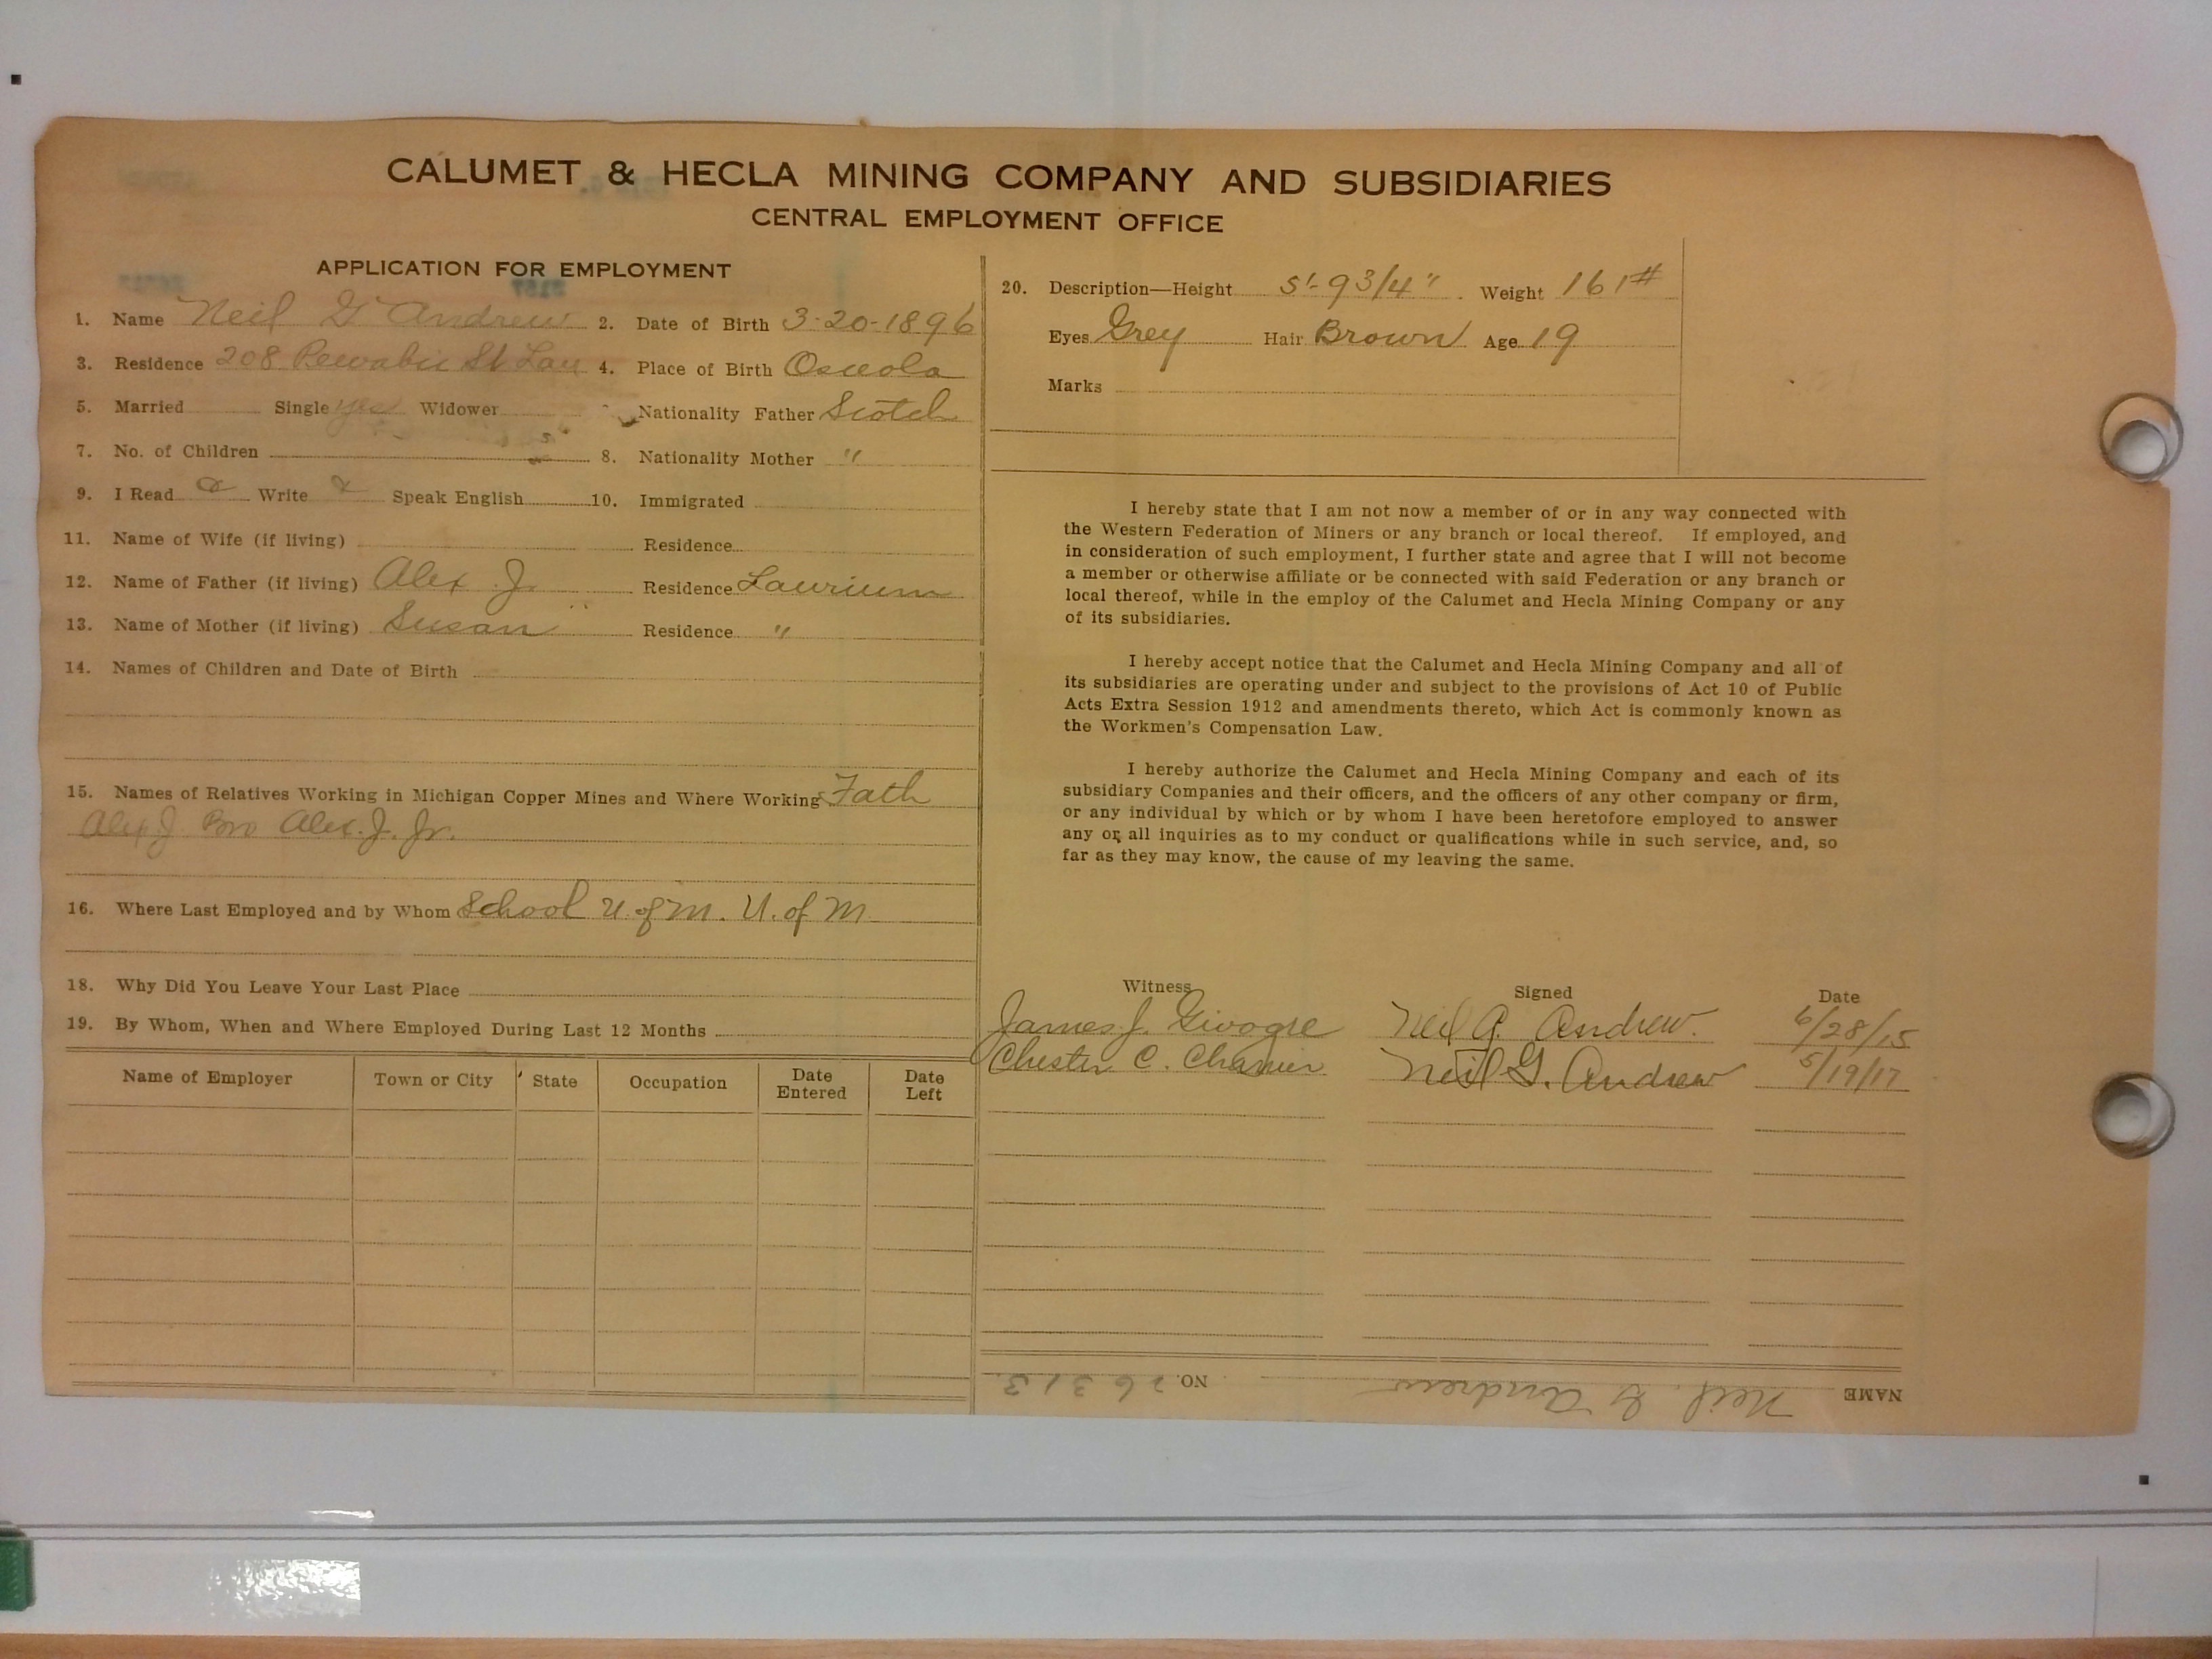 CALUMET & HECLA MINING COMPANY AND SUBSIDIARIES
CENTRAL EMPLOYMENT OFFICE
APPLICATION FOR EMPLOYMENT
1. Name Neil G Andrew 2. Date of Birth 3-20-1896
3. Residence 208 Pewabic St Lau 4. Place of Birth Osceola
5. Married Single yes Widower Nationality Father Scotch
7. No. of Children 8. Nationality Mother "
9. I Read Write Speak English 10. Immigrated
11. Name of Wife (if living) Residence
12. Name of Father (if living) Alex J. Residence Laurium
13. Name of Mother (if living) Susan Residence "
14. Names of Children and Date of Birth
15. Names of Relatives Working in Michigan Copper Mines and Where Working Fath
Alex J Bro Alex. J. Jr.
16. Where Last Employed and by Whom School U. of M. U. of M
18. Why Did You Leave Your Last Place
19. By Whom, When and Where Employed During Last 12 Months
Name of Employer Town or City State Occupation Date Entered Date Left
20. Description—Height 5'-9 3/4" Weight 161#
Eyes Grey Hair Brown Age 19
Marks
I hereby state that I am not now a member of or in any way connected with
the Western Federation of Miners or any branch or local thereof. If employed, and
in consideration of such employment, I further state and agree that I will not become
a member or otherwise affiliate or be connected with said Federation or any branch or
local thereof, while in the employ of the Calumet and Hecla Mining Company or any
of its subsidiaries.
I hereby accept notice that the Calumet and Hecla Mining Company and all of
its subsidiaries are operating under and subject to the provisions of Act 10 of Public
Acts Extra Session 1912 and amendments thereto, which Act is commonly known as
the Workmen's Compensation Law.
I hereby authorize the Calumet and Hecla Mining Company and each of its
subsidiary Companies and their officers, and the officers of any other company or firm,
or any individual by which or by whom I have been heretofore employed to answer
any or all inquiries as to my conduct or qualifications while in such service, and, so
far as they may know, the cause of my leaving the same.
Witness Signed Date
James J. Neil G. Andrew. 6/28/15
Chester C. Neil G. Andrew 5/19/17
NAME Neil G Andrew NO. 26313